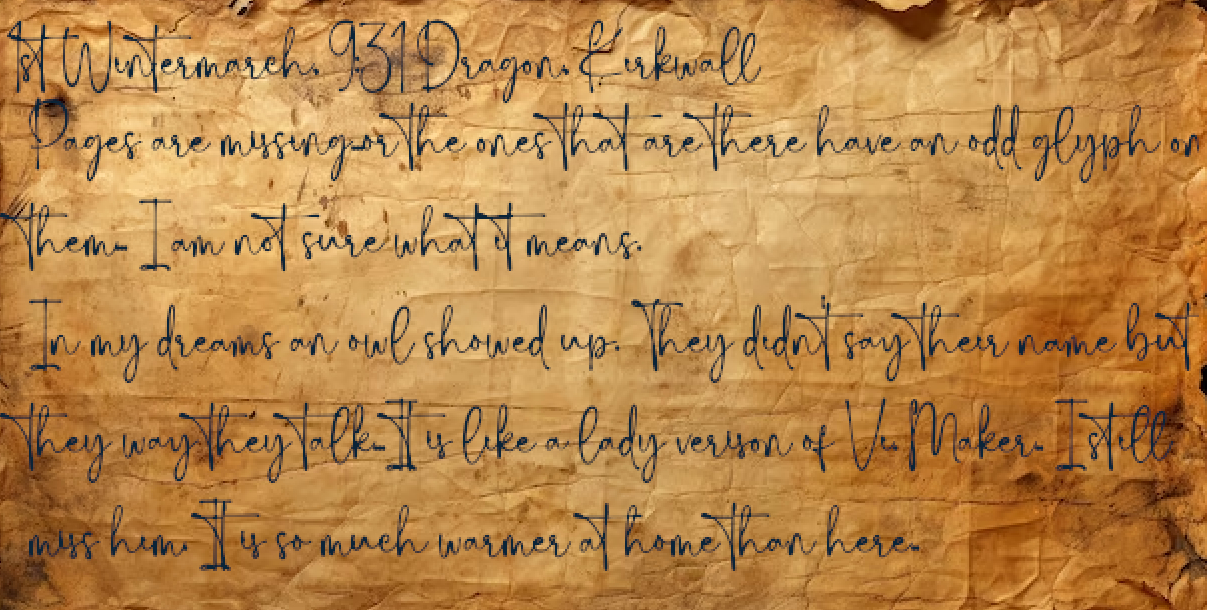 1st Wintermarch. 9:31 Dragon. Kirkwall
Pages are missing..or the ones that are there have an odd glyph on
them.. I am not sure what it means.
In my dreams an owl showed up. They didn't say their name but
they way they talk.. It is like a lady verison of Vi. Maker.. I still
miss him. It is so much warmer at home than here..